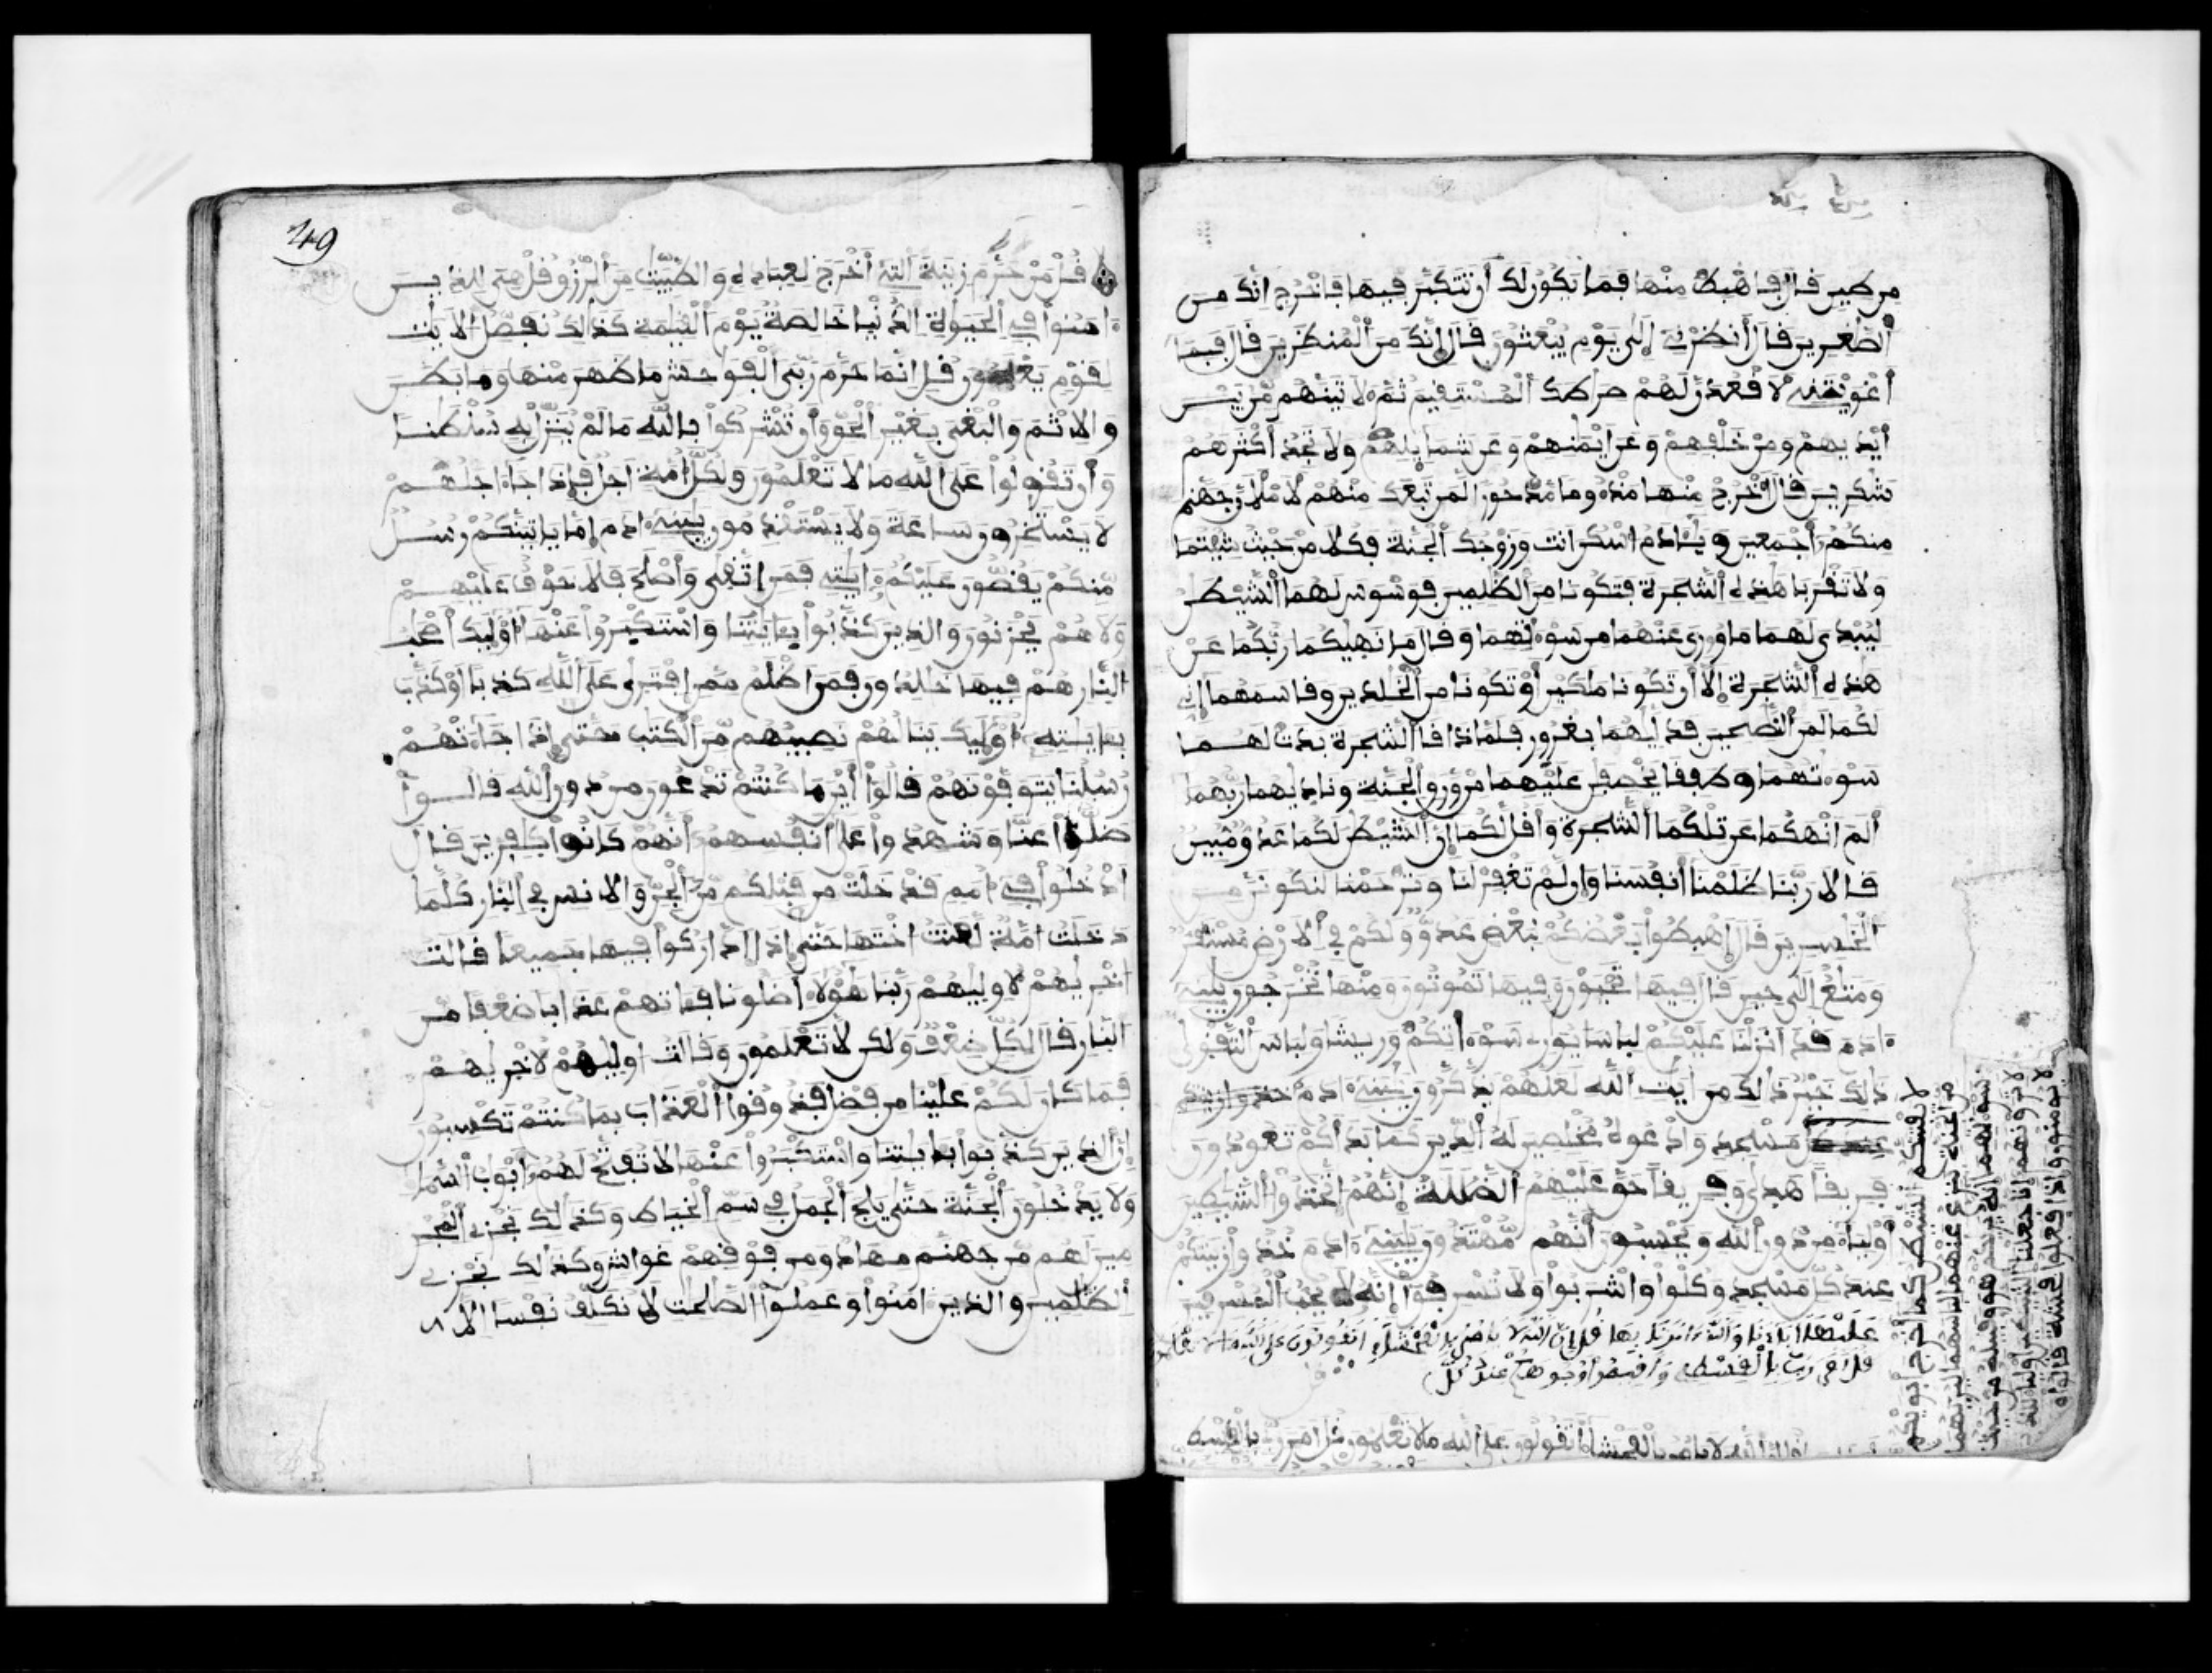 من طين فال فاهبط منها فما يكون لك أن تتكبر فيها فاخرج انك من
ألصغرين فال أنظرنے إلى يوم يبعثون فال إنك من ألمنظرين فال فبما
أغويتنے لأفعدن لهم صرطك ألمستفيم ثم لأتينهم من بيـن
أيديهم ومن خلفهم وعن أيمنهم وعن شمايلهم ولا تجد أكثرهم
شكرين فال اخرج منها مذءوما مدحورا لمن تبعك منهم لأملأن جهنم
منكم أجمعين ويئادم اسكن انت وزوجك ألجنة فكلا من حيث شيتما
ولا تفربا هذه ألشجرة فتكونا من ألظلمين فوسوس لهما ألشيطن
ليبدى لهما ما وري عنهما من سوءتهما وفال ما نهيكما ربكما عن
هذه ألشجرة إلا أن تكونا ملكين أو تكونا من ألخلدين وفاسمهما إنے
لكما لمن ألنصحين فدليهما بغرور فلما ذافا ألشجرة بدت لهـما
سوءتهما وطففا يخصفن عليهما من ورو ألجنة وناديهما ربهما
ألم انهكما عن تلكما ألشجرة وأفل لكما إن ألشيطن لكما عدو مبين
فالا ربنا ظلمنا أنفسنا وإن لم تغفر لنا وترحمنا لنكونن من
ألخسرين فال اهبطوا بعضكم لبعض عدو ولكم في ألارض مستفر
ومتع إلى حين فال فيها تحيون وفيها تموتون ومنها تخرجون يبنے
ءادم فد انزلنا عليكم لباسا يورے سوءاتكم وريشا ولباس ألتفوى
ذلك خير ذلك من ايت ألله لعلهم يذكرون يبنے ءادم خذوا زينتكم
عند كل مسجد وادعوه مخلصين له ألدين كما بدأكم تعودون
فريفا هدى وفريفا حو عليهم ألضللة إنهم اتخذوا ألشيطين
أولياء من دون ألله ويحسبون أنهم مهتدون يبنے ءادم خذوا زينتكم
عند كل مسجد وكلوا واشربوا ولا تسرفوا إنه لا يحب ألمسرفين
عليها اباءنا والله امرنا بها فل إن الله لا يامر بالفحشاء اتفولون على الله ما لا تعلمون
فل امر ربي بالفسط وأفيموا وجوهكم عند كل
فل إن ألله لا يامر بالفحشاء أتفولون على ألله ما لا تعلمون فل امر ربے بالفسط
لا يفتننكم ألشيطن كما أخرج أبويكم
من ألجنة ينزع عنهما لباسهما ليريهما
سوءتهما إنه يريكم هو وفبيله من حيث
لا ترونهم إنا جعلنا ألشيطين أولياء للذين
لا يومنون وإذا فعلوا فحشة فالوا
49
فل من حرم زينة ألله ألتے أخرج لعباده والطيبت من ألرزو فل هي للذيـن
ءامنوا في ألحيوة ألدنيا خالصة يوم ألفيمة كذلك نفصل ألايت
لفوم يعلمون فل انما حرم ربي ألفوحش ما ظهر منها وما بطـن
والاثم والبغي بغير ألحو وأن تشركوا بالله ما لم ينزل به سلطنا
وأن تفولوا على ألله ما لا تعلمون ولكل أمة اجل فإذا جاء اجلهـم
لا يستخرون ساعة ولا يستفدمون يبنے ءادم إما ياتينكم رسـل
منكم يفصون عليكم ءايتے فمن اتفى وأصلح فلا خوف عليهـم
ولا هم يحزنون والذين كذبوا بءايتنا واستكبروا عنها أوليك أصحب
ألنار هم فيها خلدون فمن اظلم ممن افترى على ألله كذبا او كذب
بءايته أوليك ينالهم نصيبهم من ألكتب حتى إذا جاءتهـم
رسلنا يتوفونهم فالوا أين ما كنتم تدعون من دون ألله فالـوا
ضلوا عنا وشهدوا على أنفسهم أنهم كانوا كفرين فال
أدخلوا في أمم فد خلت من فبلكم من ألجن والانس في ألنار كلما
دخلت امة لعنت اختها حتى إذا اداركوا فيها جميعا فالت
اخريهم لأوليهم ربنا هؤلاء اضلونا فءاتهم عذابا ضعفا مـن
ألنار فال لكل ضعف ولكن لا تعلمون وفالت اوليهم لأخريهـم
فما كان لكم علينا من فضل فذوفوا ألعذاب بما كنتم تكسبون
إن ألذين كذبوا بءايتنا واستكبروا عنها لا تفتح لهم أبوب ألسما
ولا يدخلون ألجنة حتى يلج ألجمل في سم ألخياط وكذلك نجزے ألمجر
مين لهم من جهنم مهاد ومن فوفهم غواش وكذلك نجزے
ألظلمين والذين ءامنوا وعملوا ألصلحت لا نكلف نفسا الا